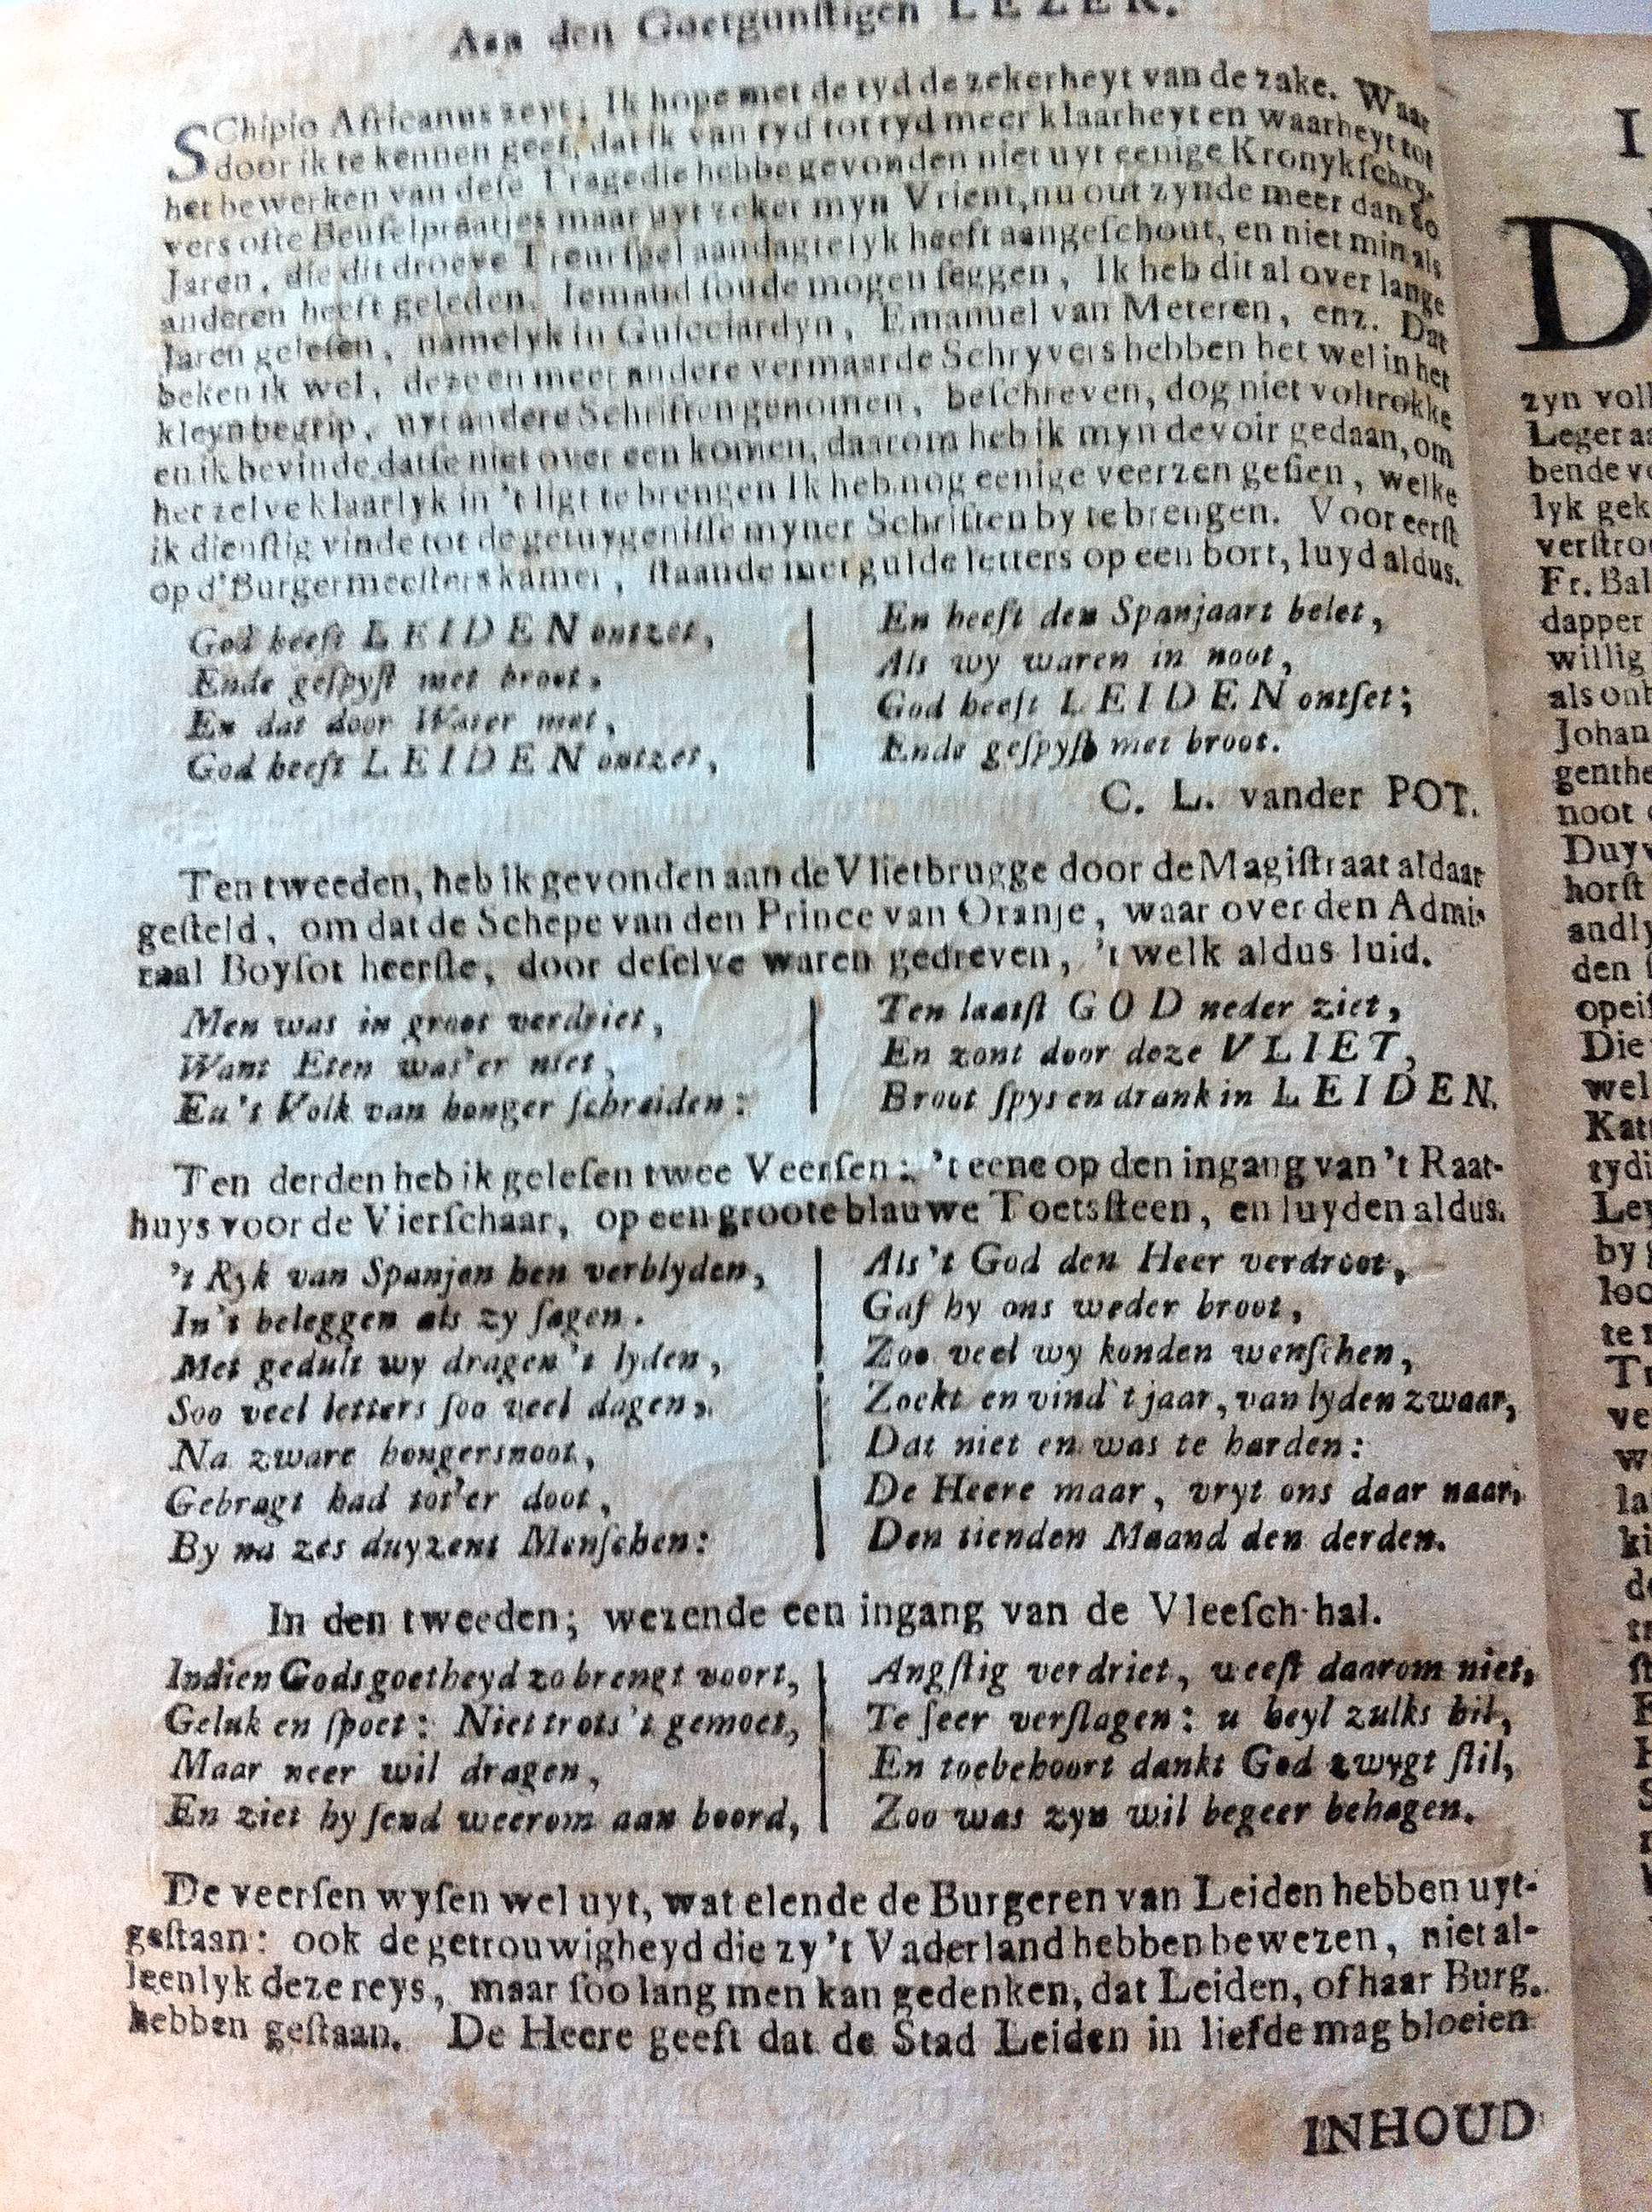 Aan den Goetgunſtigen LEZER.
SChipio Africanus zeyt; Ik hope met de tyd de zekerheyt van de zake. Waar
door ik te kennen geef, dat ik van tyd tot tyd meer klaarheyt en waarheyt tot
het bewerken van deſe Tragedie hebbe gevonden niet uyt eenige Kronykſchry-
vers ofte Beuſelpraatjes maar uyt zeker myn Vrient, nu out zynde meer dan 80
Jaren, die dit droeve Treurſpel aandagtelyk heeft aangeſchout, en niet min als
anderen heeft geleden. Iemand ſoude mogen ſeggen, Ik heb dit al over lange
Jaren geleſen, namelyk in Guicciardyn, Emanuel van Meteren, enz. Dat
beken ik wel, deze en meer andere vermaarde Schryvers hebben het wel in het
kleyn begrip, uyt andere Schriften genomen, beſchreven, dog niet voltrokke
en ik bevinde datſe niet over een komen, daarom heb ik myn devoir gedaan, om
het zelve klaarlyk in 't ligt te brengen Ik heb nog eenige veerzen geſien, welke
ik dienſtig vinde tot de getuygeniſſe myner Schriften by te brengen. Voor eerſt
op d'Burgermeeſters kamer, ſtaande met gulde letters op een bort, luyd aldus.
God heeft LEIDEN ontzet,
Ende geſpyſt met broot.
En dat door Water met,
God heeft LEIDEN ontzet,
En heeft den Spanjaart belet,
Als wy waren in noot,
God heeft LEIDEN ontſet;
Ende geſpyſt met broot.
C. L. vander POT.
Ten tweeden, heb ik gevonden aan de Vlietbrugge door de Magiſtraat aldaar
geſteld, om dat de Schepe van den Prince van Oranje, waar over den Admi-
raal Boyſot heerſte, door deſelve waren gedreven, 't welk aldus luid.
Men was in groot verdriet,
Want Eten was'er niet,
En't Volk van honger ſchreiden:
Ten laatſt GOD neder ziet,
En zont door deze VLIET,
Broot ſpys en drank in LEIDEN.
Ten derden heb ik geleſen twee Veerſen: 't eene op den ingang van 't Raat-
huys voor de Vierſchaar, op een groote blauwe Toetsſteen, en luyden aldus.
't Ryk van Spanjen hen verblyden,
In't beleggen als zy ſagen.
Met gedult wy dragen 't lyden,
Soo veel letters ſoo veel dagen,
Na zware hongersnoot,
Gebragt had tot'er doot,
By na zes duyzent Menſchen:
Als 't God den Heer verdroot,
Gaf hy ons weder broot,
Zoo veel wy konden wenſchen,
Zoekt en vind 't jaar, van lyden zwaar,
Dat niet en was te harden:
De Heere maar, vryt ons daar naar,
Den tienden Maand den derden.
In den tweeden; wezende een ingang van de Vleeſch-hal.
Indien Gods goetheyd zo brengt voort,
Geluk en ſpoet: Niet trots 't gemoet,
Maar neer wil dragen,
En ziet hy ſend weerom aan boord,
Angſtig verdriet, weeſt daarom niet,
Te ſeer verſlagen: u heyl zulks hil,
En toebehoort dankt God zwygt ſtil,
Zoo was zyn wil begeer behagen.
De veerſen wyſen wel uyt, wat elende de Burgeren van Leiden hebben uyt-
geſtaan: ook de getrouwigheyd die zy 't Vaderland hebben bewezen, niet al-
leenlyk deze reys, maar ſoo lang men kan gedenken, dat Leiden, of haar Burg.
hebben geſtaan. De Heere geeft dat de Stad Leiden in liefde mag bloeien
INHOUD
I
D
zyn voll
Leger aa
bende vo
lyk gek
verſtro
Fr. Bal
dapper
willig
als ont
Johan
genthe
noot
Duyv
horſt
andly
den
opeiſ
Die
wel
Kat
tydi
Ley
by
loo
te